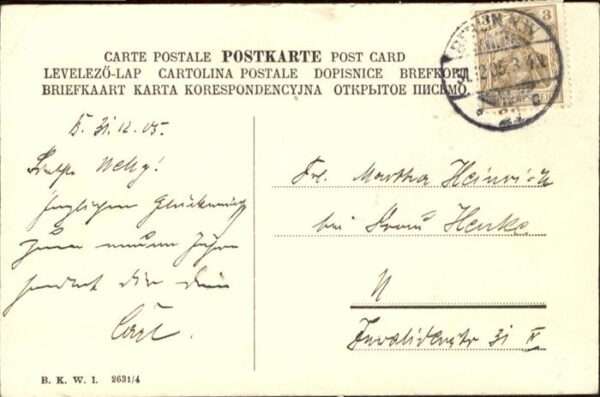 CARTE POSTALE POSTKARTE POST CARD
LEVELEZŐ-LAP CARTOLINA POSTALE DOPISNICE BREFKORT
BRIEFKAART KARTA KORESPONDENCYJNA ОТКРЫТОЕ ПИСЬМО.
3
B. 31.12.05.
Herzlichen Glückwunsch
zum neuen Jahre
sendet dir dein
Carl.
Frl. Martha Heinrich
bei Frau Henke
N
Invalidenstr 31 II
B. K. W. I. 2631/4